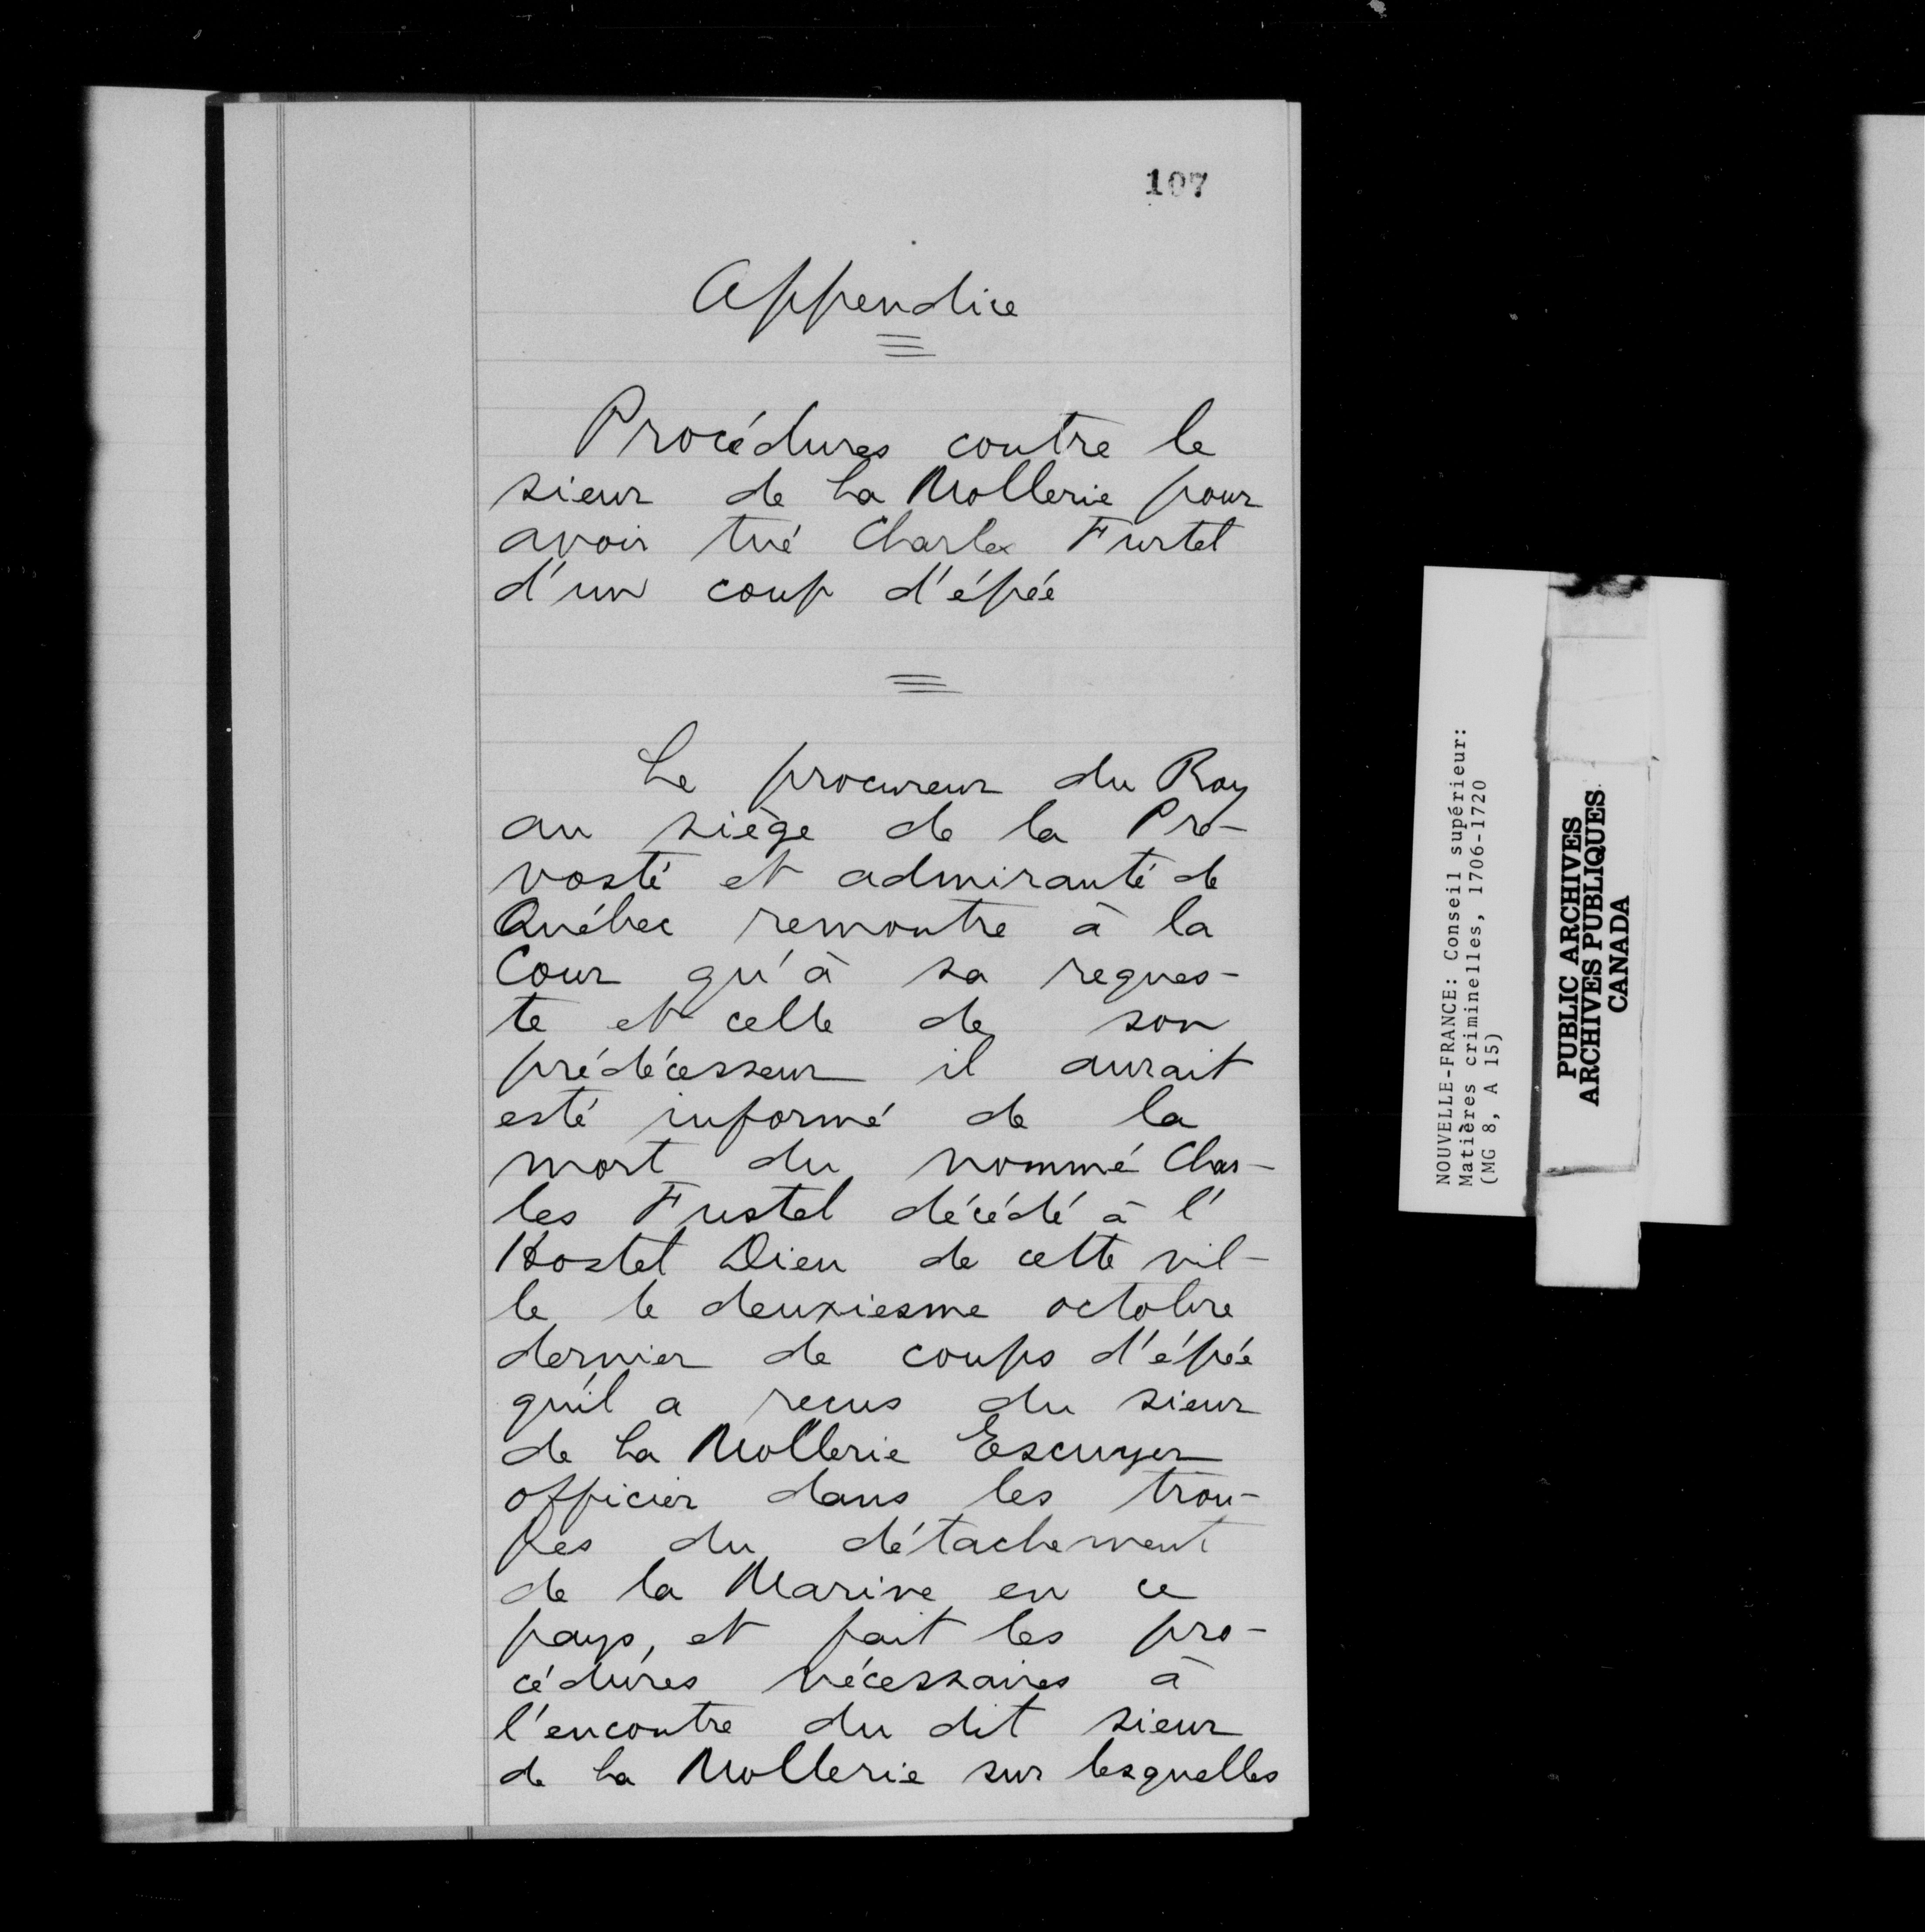 107
Appendice
Procédures contre le
sieur de La Mollerie pour
avoir tué Charles Fustel
d'un coup d'épée
Le procureur du Roy
au siège de la Pro-
vosté et admirauté de
Québec remontre à la
Cour qu'à sa reques-
te et celle de son
prédécesseur il aurait
esté informé de la
mort du nommé Char-
les Fustel décédé à l'
Hostel Dieu de cette vil-
le le deuxiesme octobre
dernier de coups d'épée
qu'il a recus du sieur
de La Mollerie Escuyer
officier dans les trou-
pes du détachement
de la Marine en ce
pays, et fait les pro-
cédures nécessaires à
l'encontre du dit sieur
de La Mollerie sur lesquelles
NOUVELLE-FRANCE: Conseil supérieur:
Matières criminelles, 1706-1720
(MG 8, A 15)
PUBLIC ARCHIVES
ARCHIVES PUBLIQUES
CANADA